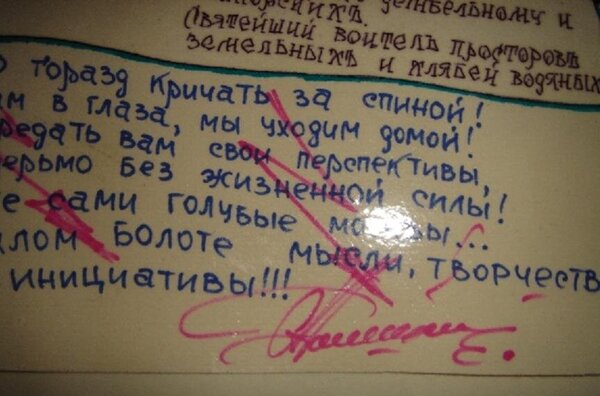 дѣтѣельному и
Святейший воитель просторовъ
земельныхъ и хлябей водяных
горазд кричать за спиной!
ам в глаза, мы уходим домой!
редать вам свои перспективы,
ерьмо без жизненной силы!
е сами голубые мо вы...
лом болоте мысли, творчеств
инициативы!!!